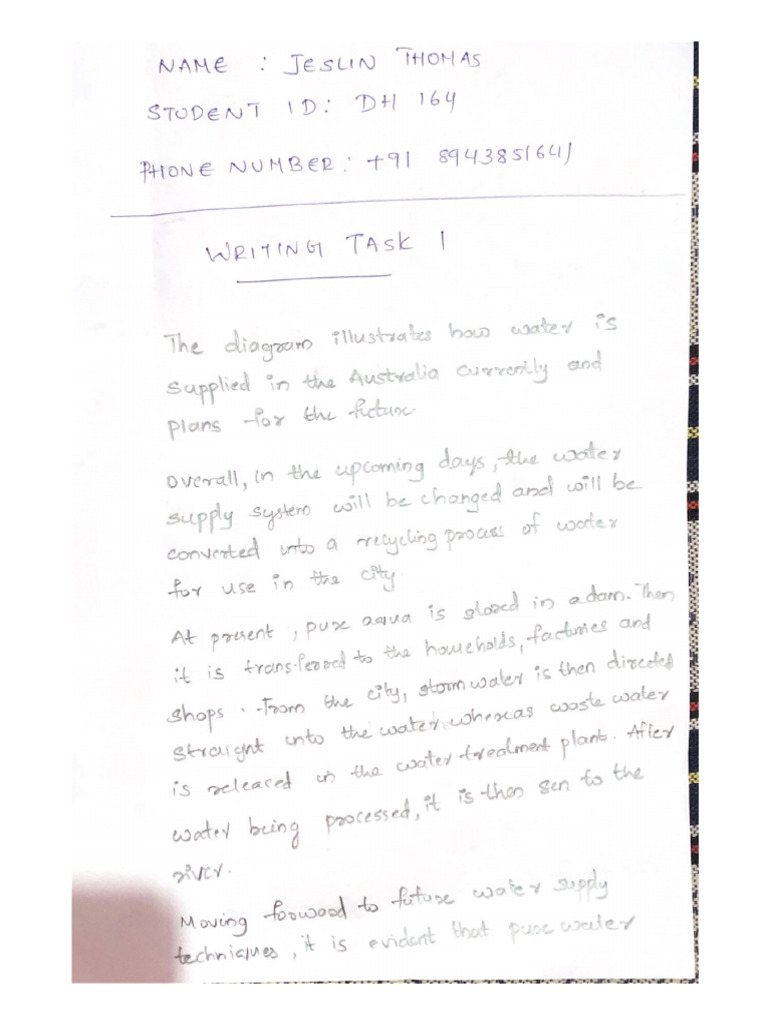 NAME : JESLIN THOMAS
STUDENT ID: DH 164
PHONE NUMBER: +91 8943851641
WRITING TASK 1
The diagram illustrates how water is
supplied in the Australia currently and
plans for the future.
Overall, in the upcoming days, the water
supply system will be changed and will be
converted into a recycling process of water
for use in the city.
At present, pure aqua is stored in a dam. Then
it is transferred to the households, factories and
shops. From the city, storm water is then directed
straight into the water whereas waste water
is released in the water treatment plant. After
water being processed, it is then sen to the
river.
Moving forwood to future water supply
techniques, it is evident that pure water